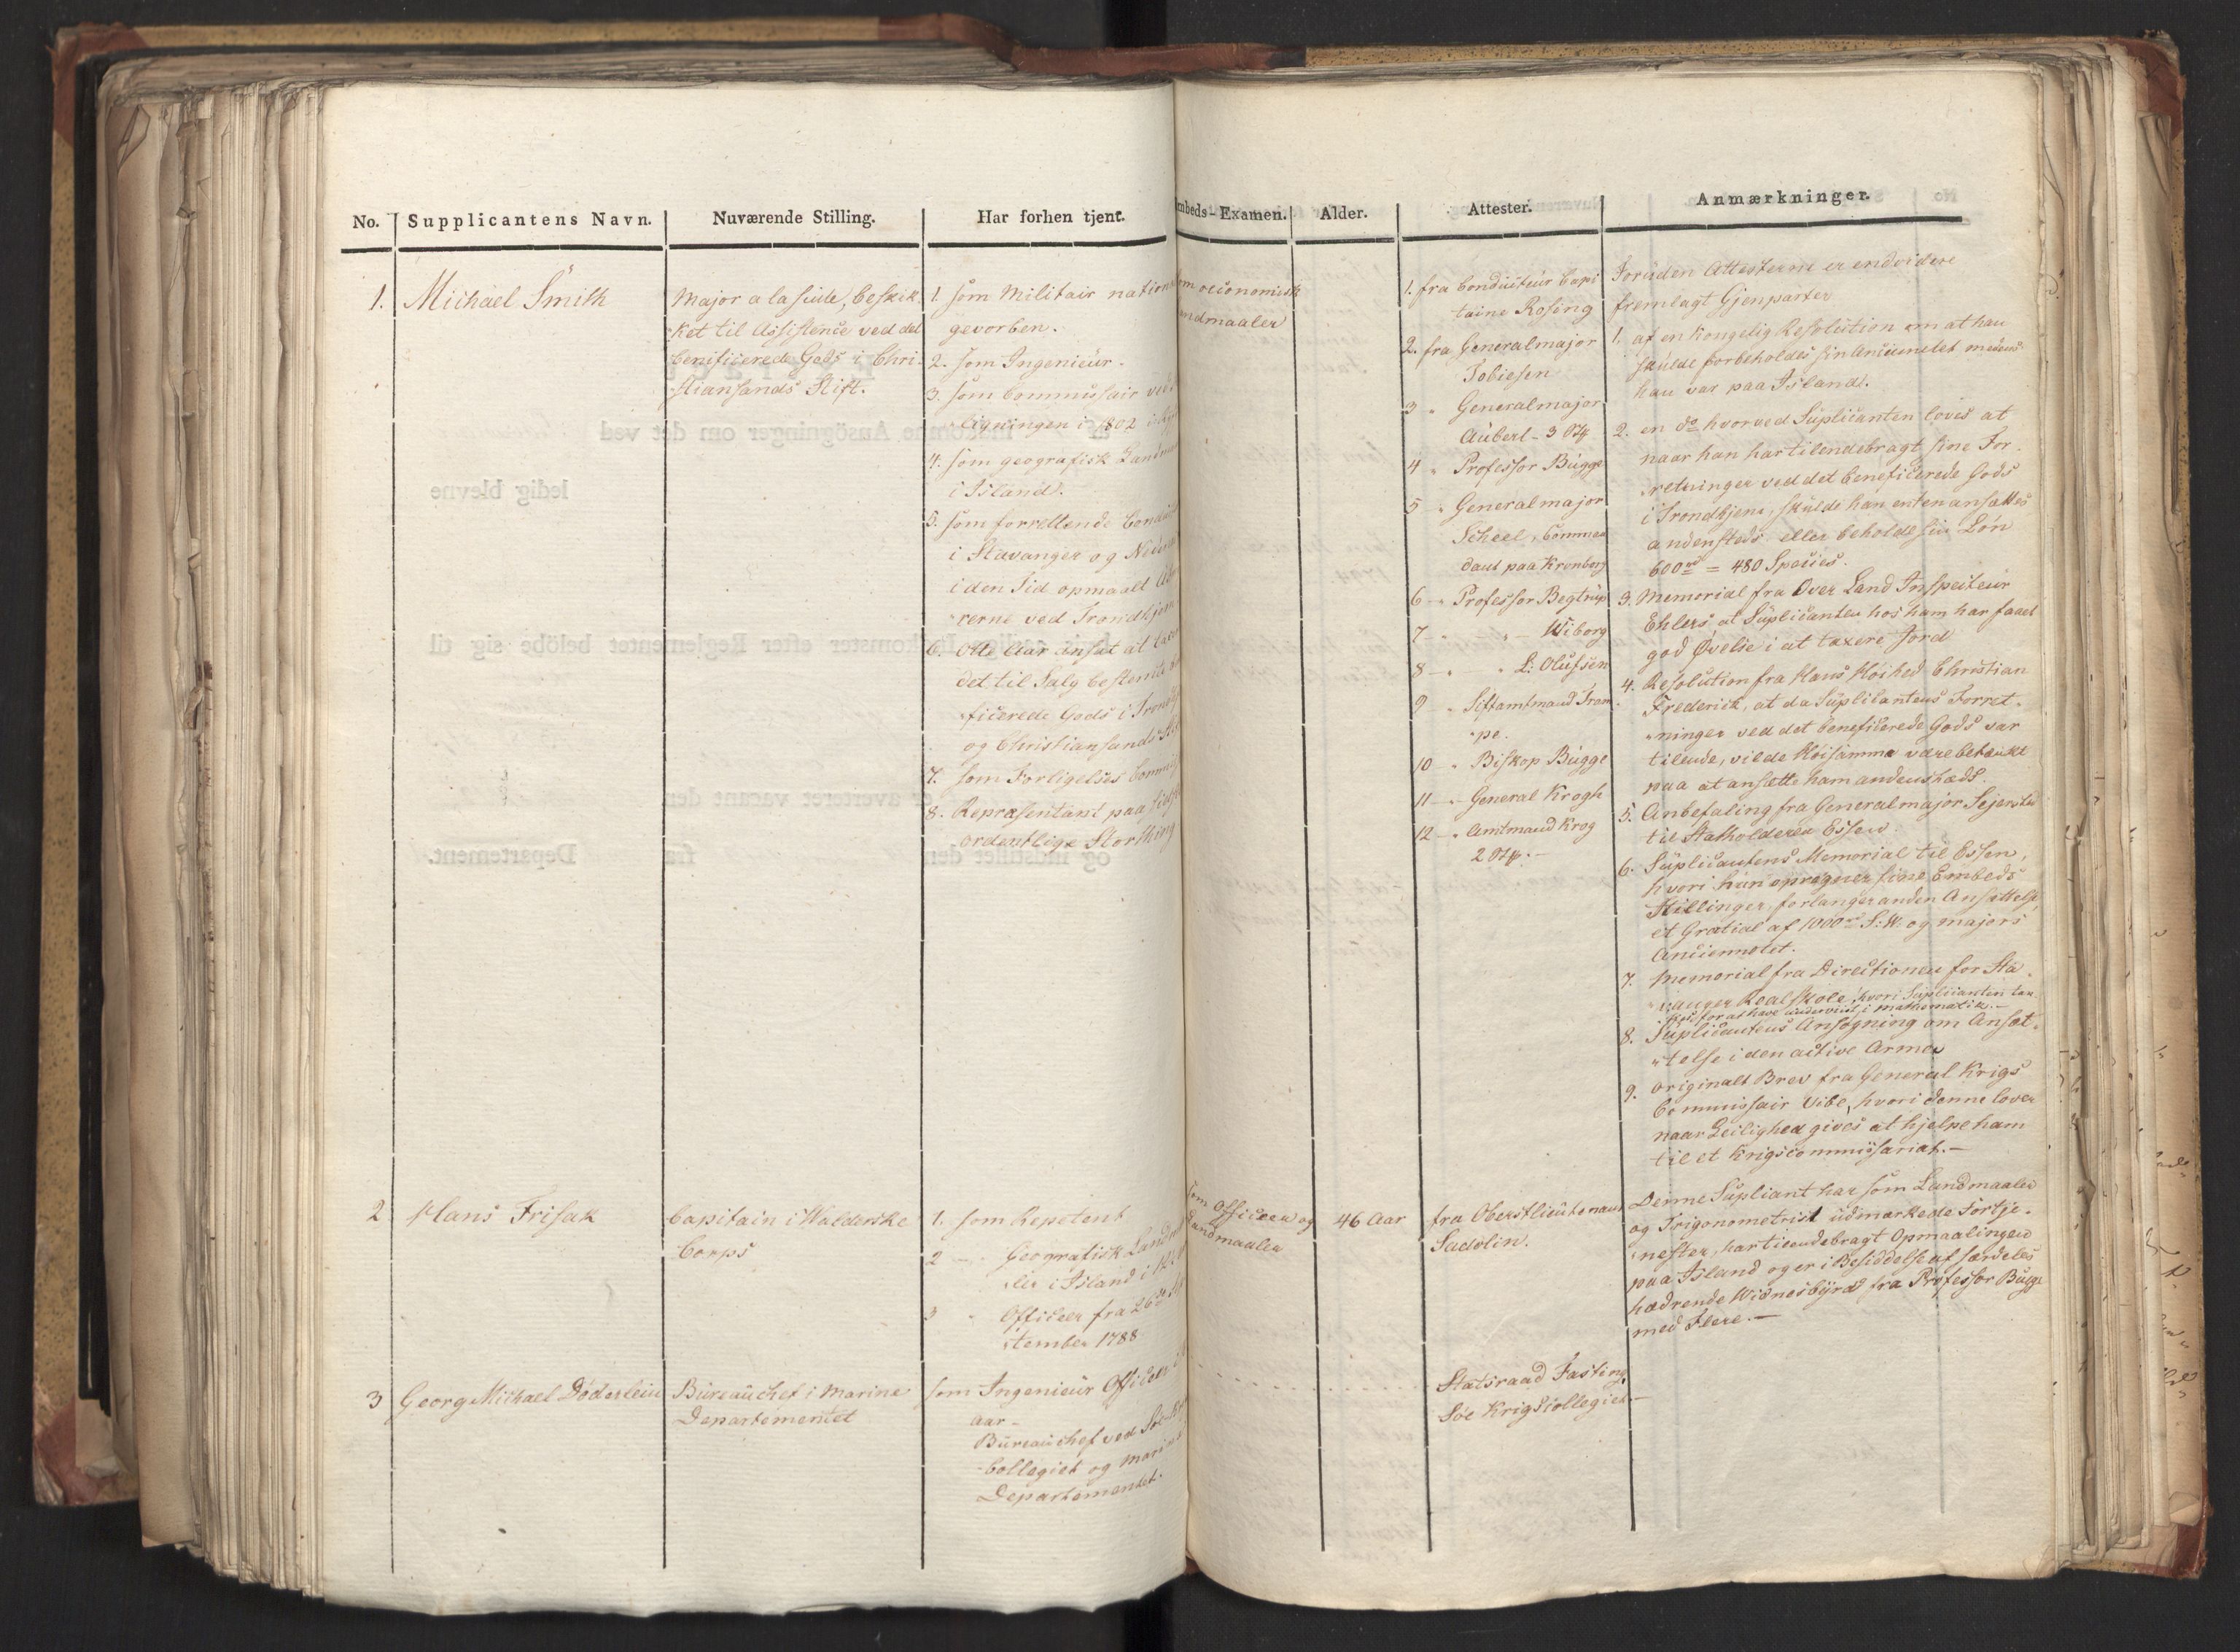 No.
Supplicantens Navn.
Nuværende Stilling.
Har forhen tjent.
mbeds-Examen.
Alder.
Attester.
Anmærkninger.
1.
Michael Smith
Major a la suite, beskik
ket til Assistence ved det
beneficerede Gods i Chri-
stiansands Stift.
1. som Militair nation
gevorben.
2. som Ingenieur.
3. som Commissair ved
Ligningen i 1802 i
4. som geografisk Land
i Island.
5. som forrettende
i Stavanger og
i den Tid opmaalt
rerne ved Trondhjem
6. Otte Aar ansat at
det til Salg bestemte
ficerede Gods i Trond
og Christiansands
7. som Forligelses Commis
8. Repræsentant paa
ordentlige Storthing
om oeconomisk
andmaaler
1. fra Conducteur Capi
taine Rosing
2. fra Generalmajor
Tobiesen
3 " Generalmajor
Aubert - 3 Stk
4 " Professor Bugge
5 " Generalmajor
Scheel, Commen
dant paa Kronborg
6 - " Professor Begtrup
7 - " - " - Wiborg
8 - " " L: Olufsen
9 " Stiftamtmand Tram
"pe.
10 - " Biskop Bugge
11 - - General Krogh
12 - " Amtmand Krog
2 Stk. -
Foruden Attesterne er endvidere
fremlagt Gjenparter
1. af en Kongelig Resolution om at han
skulde forbeholdes sin Anciennetet medens
han var paa Island.
2. en do hvorved Suplicanten loves at
naar han har tilendebragt sine For-
retninger ved det beneficerede Gods
i Trondhjem, skulde han enten ansættes
andensteds eller beholde sin Løn
600 rd = 480 Species.
3. Memorial fra Over Land Inspecteur
Ehlers at Suplicanten hos ham har faaet
god Øvelse i at taxere Jord
4. Resolution fra Hans Høihed Christian
Frederick, at da Suplicantens Forret-
ninger ved det beneficerede Gods var
tilende, vilde Høisamme være betænkt
paa at ansætte ham andenstæds.
5. Anbefaling fra Generalmajor Sejersted
til Statholderen Essen.
6. Suplicantens Memorial til Essen,
hvori han opregner sine Embeds
Stillinger, forlanger anden Ansættelse,
et Gratial af 1000 rd S:W. og Majors
Anciennetet.
7. Memorial fra Directionen for Sta-
vanger Realskole, hvori Suplicanten tak
kes for at have underviist i Mathematik. -
8. Suplicantens Ansøgning om Ansæt-
"telse i den active Armee
9. Originalt Brev fra General Krigs
Commissair Vibe, hvori denne lover
naar Leilighed gives at hjelpe ham
til et Krigscommissariat. -
2
Hans Frisak
Capitain i Walderske
Corps
1. som Repetent
2 - " Geografisk Land
ler i Island i 12
3 " Officeer fra 26de
tember 1788
som Officeer og
Landmaaler
46 Aar
fra Oberstlieutenant
Sadolin.
Denne Supliant har som Landmaaler
og Trigonometrist udmærkede Fortje-
nester, har tilendebragt Opmaalingen
paa Island og er i Besiddelse af særdeles
hædrende Widnesbyrd fra Professor Bugge
med Flere. -
3
Georg Michael Døderlein
Bureauchef i Marine
Departementet
som Ingenieur Officeer i
Aar -
Bureauchef ved Søe
Collegiet og Marine
Departementet.
Statsraad Fasting,
Søe Krigscollegiet. -